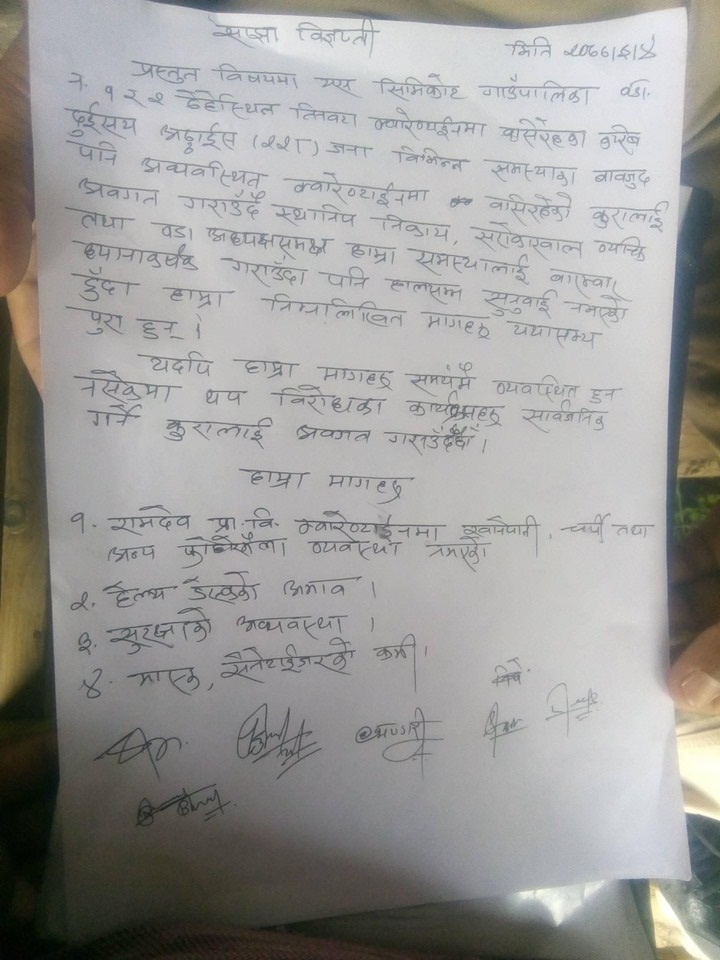 साझा विज्ञप्ती
मिति २०७७।२।४
प्रस्तुत विषयमा यस सिमिकोट गाउँपालिका वडा.
नं. १ र २ हेपेस्थित तिनवटा क्वारेण्टाईनमा बसिरहेका करिब
दुईसय अट्ठाईस (२२८) जना विभिन्न समस्याका बावजुद
पनि अव्यवस्थित क्वारेण्टाईनमा बसिरहेको कुरालाई
अवगत गराउँदै स्थानिय निकाय, सरोकारवाला व्यक्ति
तथा वडा अध्यक्षसमक्ष हाम्रा समस्यालाई बारम्बार
ध्यानाकर्षक गराउँदा पनि हालसम्म सुनुवाई नभएको
हुँदा हाम्रा निम्नलिखित मागहरु यथासम्य
पुरा हुन् ।
यद्यपि हाम्रा मागहरु समयमै व्यवस्थित हुन
नसकेमा थप विरोधका कार्यक्रमहरु सार्वजनिक
गर्ने कुरालाई अवगत गराउँदछौं ।
हाम्रा मागहरु
१. रामदेव प्रा.वि. क्वारेण्टाईनमा खानेपानी, चर्पी तथा
अन्य फोहोरमैला व्यवस्था नभएको
२. हेल्थ डेस्कको अभाव ।
३. सुरक्षाको अव्यवस्था ।
४. मास्क, सेनिटाईजरको कमी ।